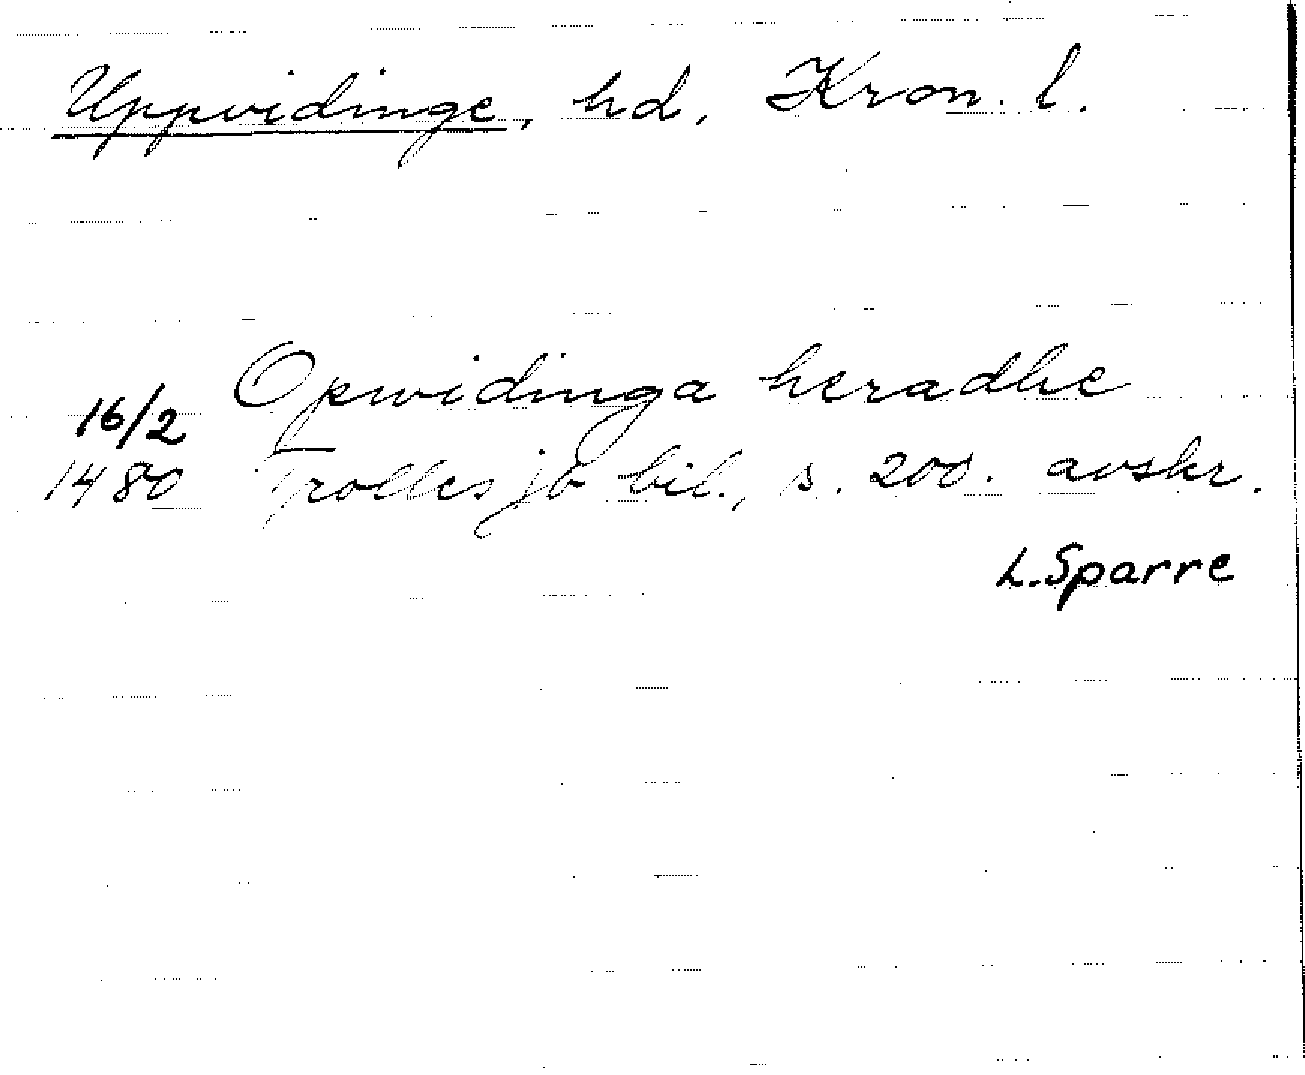 Uppvidinge, hd, Kron. l.
16/2 Opwidinga heradhe
1480 Trolles jb bil., s. 200. avskr.
L. Sparre